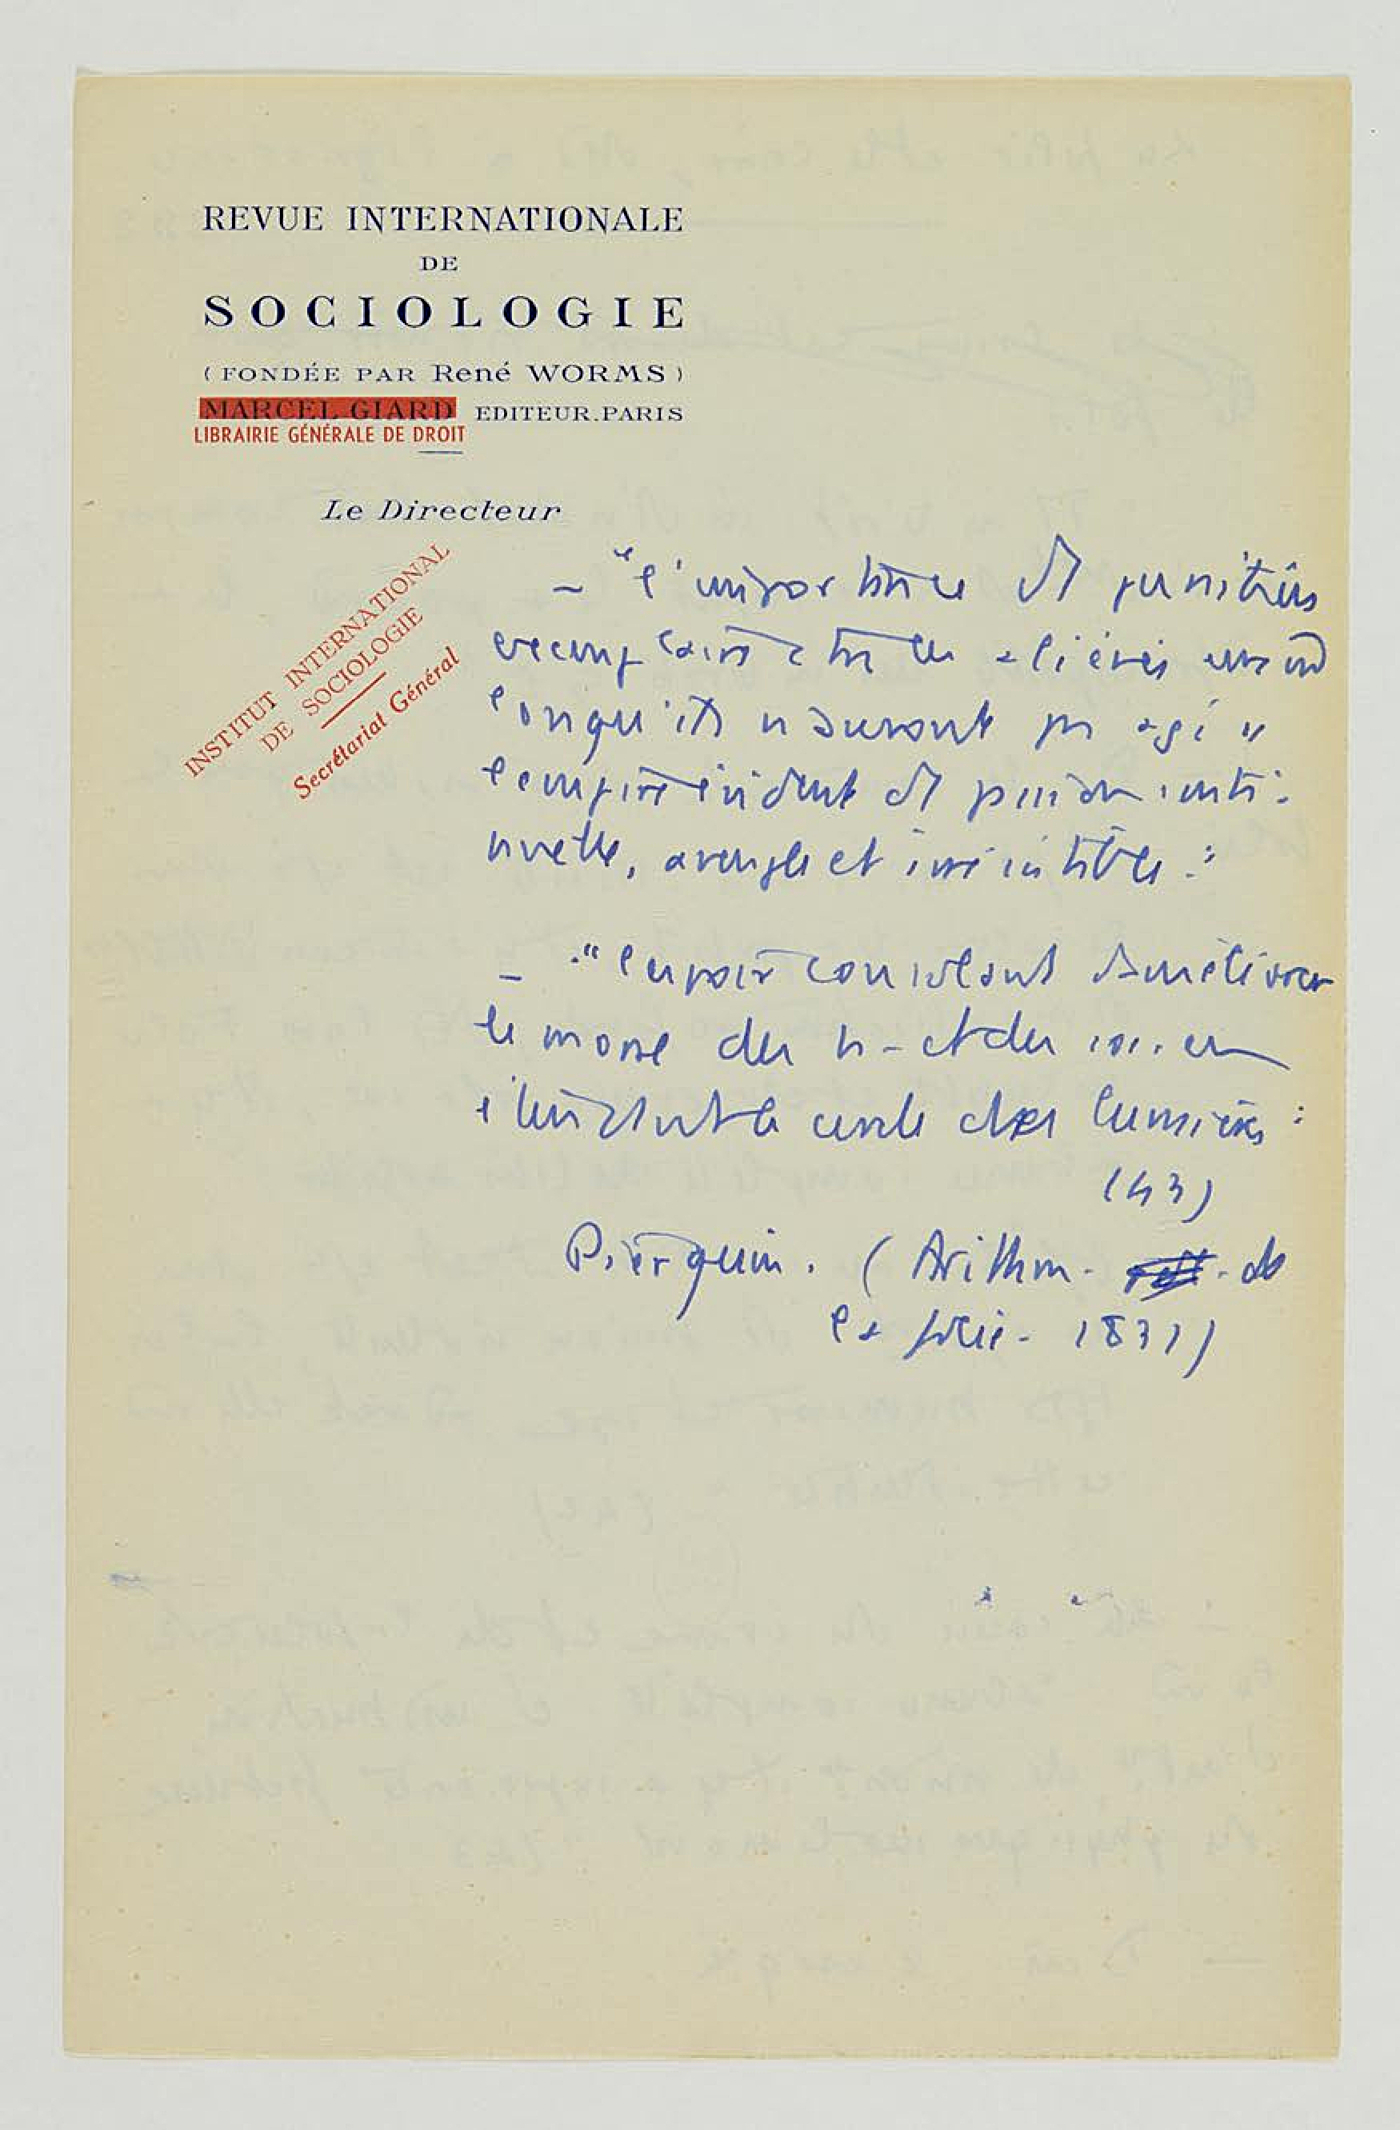 REVUE INTERNATIONALE
DE
SOCIOLOGIE
(FONDÉE PAR René WORMS)
MARCEL GIARD EDITEUR.PARIS
LIBRAIRIE GÉNÉRALE DE DROIT
Le Directeur
INSTITUT INTERNATIONAL
DE SOCIOLOGIE
Secrétariat Général
— "l'importance de punitions
exemplaires aliénés
lorsqu'ils n'auront pas agi "
l'empire évident de passion
aveugle et irrésistible."
— "l'espoir consolant d'améliorer
le monde des et des
étendant le cercle des lumières"
(43)
Pierquin. (Arithm. de
la folie - 1831)